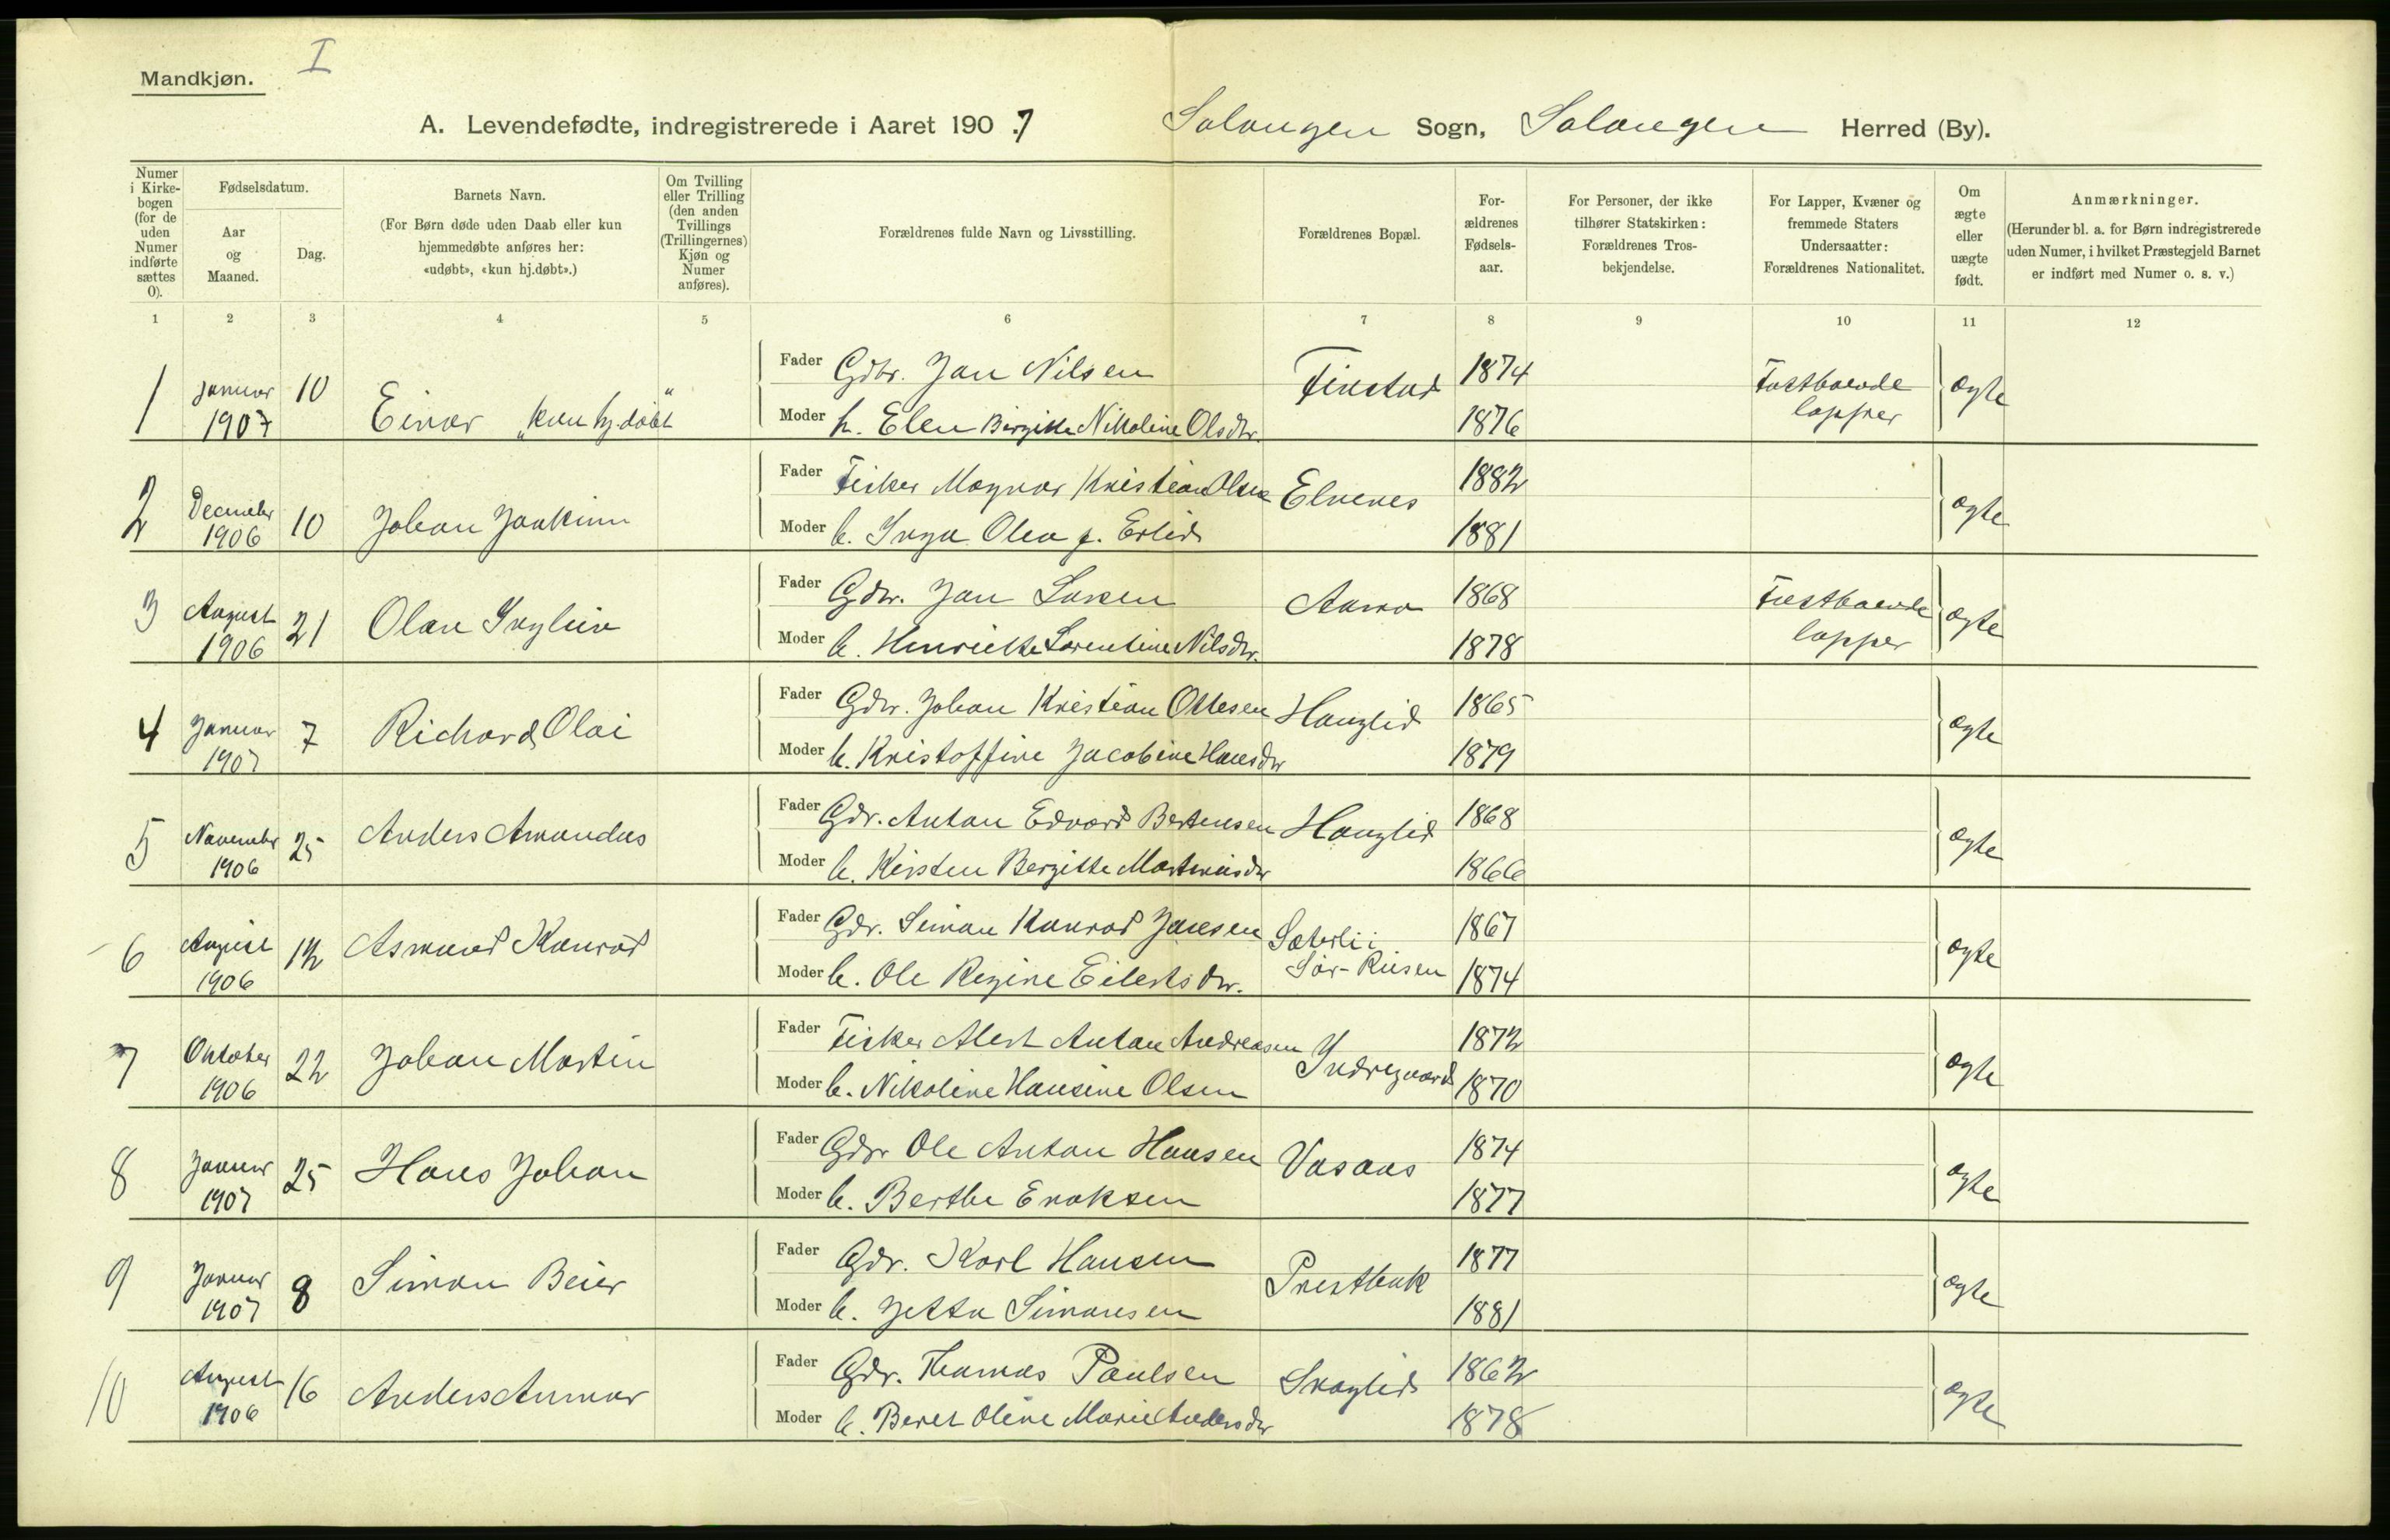 Mandkjøn.
I
A. Levendefødte, indregistrerede i Aaret 190.7 Salangen Sogn, Salangen Herred (By).
Numer i Kirkebogen (for de uden Numer indførte sættes 0).
Fødselsdatum.
Aar og Maaned.
Dag.
Barnets Navn.
(For Børn døde uden Daab eller kun hjemmedøbte anføres her: «udøbt», «kun hj.døbt».)
Om Tvilling eller Trilling (den anden Tvillings (Trillingernes) Kjøn og Numer anføres).
Forældrenes fulde Navn og Livsstilling.
Forældrenes Bopæl.
For-ældrenes Fødsels-aar.
For Personer, der ikke tilhører Statskirken: Forældrenes Tros-bekjendelse.
For Lapper, Kvæner og fremmede Staters Undersaatter: Forældrenes Nationalitet.
Om ægte eller uægte født.
Anmærkninger.
(Herunder bl. a. for Børn indregistrerede uden Numer, i hvilket Præstegjeld Barnet er indført med Numer o. s. v.)
1 2 3 4 5 6 7 8 9 10 11 12
1 Januar 1907 10 Einar „kun hj.døbt"
Fader Gdbr. Jan Nilsen Finstad 1874 Fastboende lapper ægte
Moder h. Elen Birgitte Nikoline Olsdtr. 1876
2 December 1906 10 Johan Joakim
Fader Fisker Magnar Kristian Olsen Elvenes 1882 ægte
Moder h. Inga Olea f. Erlid 1881
3 August 1906 21 Olav
Fader Gdbr. Jan Larsen 1868 Fastboende lapper ægte
Moder h. Henriette Lorentine Nilsdtr. 1878
4 Januar 1907 7 Richard Olai
Fader Gdbr. Johan Kristian Ottesen Hauglid 1865 ægte
Moder h. Kristoffine Jacobine Hansdtr 1879
5 November 1906 25 Anders Amandus
Fader Gdr. Anton Edvard Berteusen Hauglid 1868 ægte
Moder h. Kirsten Bergitte Martinusdtr 1866
6 August 1906 12 Asmund Konrad
Fader Gdr. Simon Konrad Jansen Sæterli i Sør-Rusen 1867 ægte
Moder h. Ole Regine Eilertsdtr. 1874
7 Oktober 1906 22 Johan Martin
Fader Fisker Alert Anton Andreasen Indregaard 1872 ægte
Moder h. Nikoline Hansine Olsen 1870
8 Januar 1907 25 Hans Johan
Fader Gdbr Ole Anton Hansen Vasaas 1874 ægte
Moder h. Berthe Enoksen 1877
9 Januar 1907 8 Simon Beier
Fader Gdr. Karl Hansen Prestbak 1877 ægte
Moder h. Jetta Simonsen 1881
10 August 1906 16 Anders Anmar
Fader Gdr. Thomas Paulsen Skoglid 1862 ægte
Moder h. Beret Oline Marie Andersdtr 1878